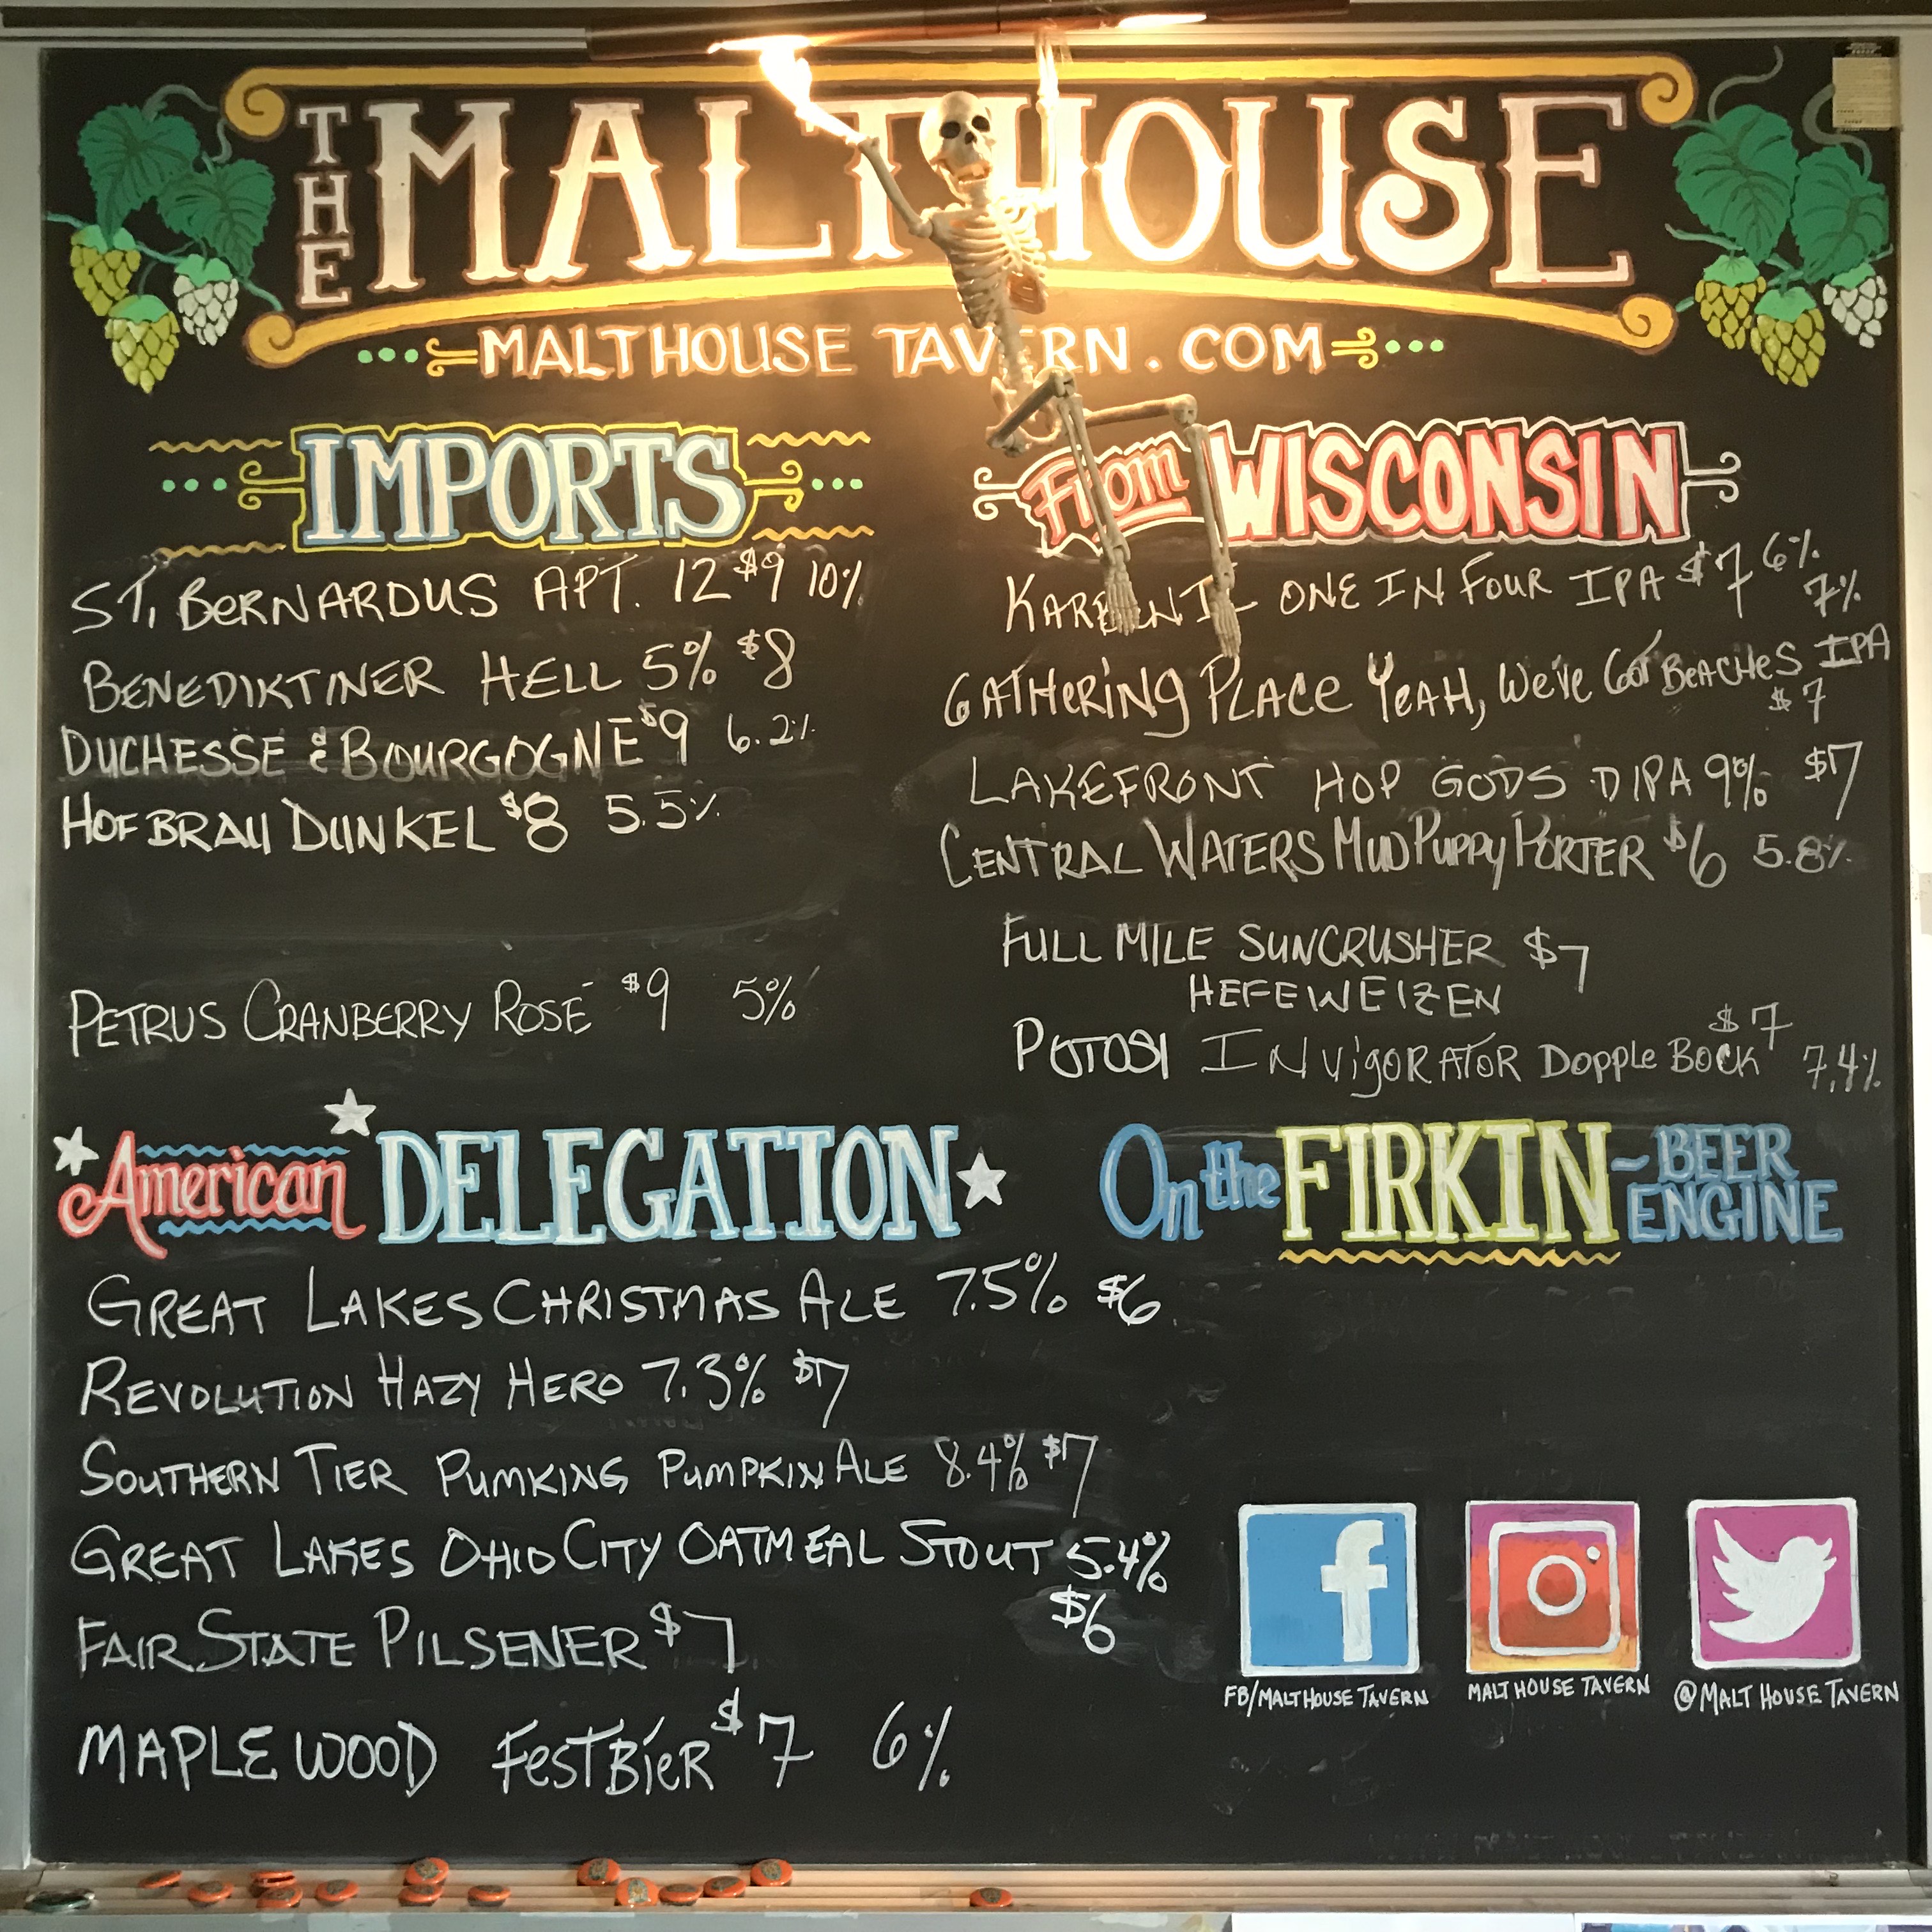 THE MALTHOUSE
MALTHOUSE TAVERN.COM
IMPORTS
ST. BERNARDUS APT. 12 $9 10%
BENEDIKTINER HELL 5% $8
DUCHESSE & BOURGOGNE $9 6.2%
HOFBRAU DUNKEL $8 5.5%
PETRUS CRANBERRY ROSÉ $9 5%
From WISCONSIN
ONE IN FOUR IPA $7 6%
7%
GATHERING PLACE YEAH, WE'VE GOT BEACHES IPA
$7
LAKEFRONT HOP GODS DIPA 9% $7
CENTRAL WATERS MUD PUPPY PORTER $6 5.8%
FULL MILE SUNCRUSHER $7
HEFEWEIZEN
$7
POTOSI INVIGORATOR DOPPLE BOCK 7.4%
American DELEGATION
GREAT LAKES CHRISTMAS ALE 7.5% $6
REVOLUTION HAZY HERO 7.3% $7
SOUTHERN TIER PUMKING PUMPKIN ALE 8.4% $7
GREAT LAKES OHIO CITY OATMEAL STOUT 5.4%
$6
FAIR STATE PILSENER $7
MAPLEWOOD FESTBIER $7 6%
On the FIRKIN ~ BEER
ENGINE
f
FB/MALTHOUSE TAVERN
MALTHOUSE TAVERN
@MALTHOUSE TAVERN